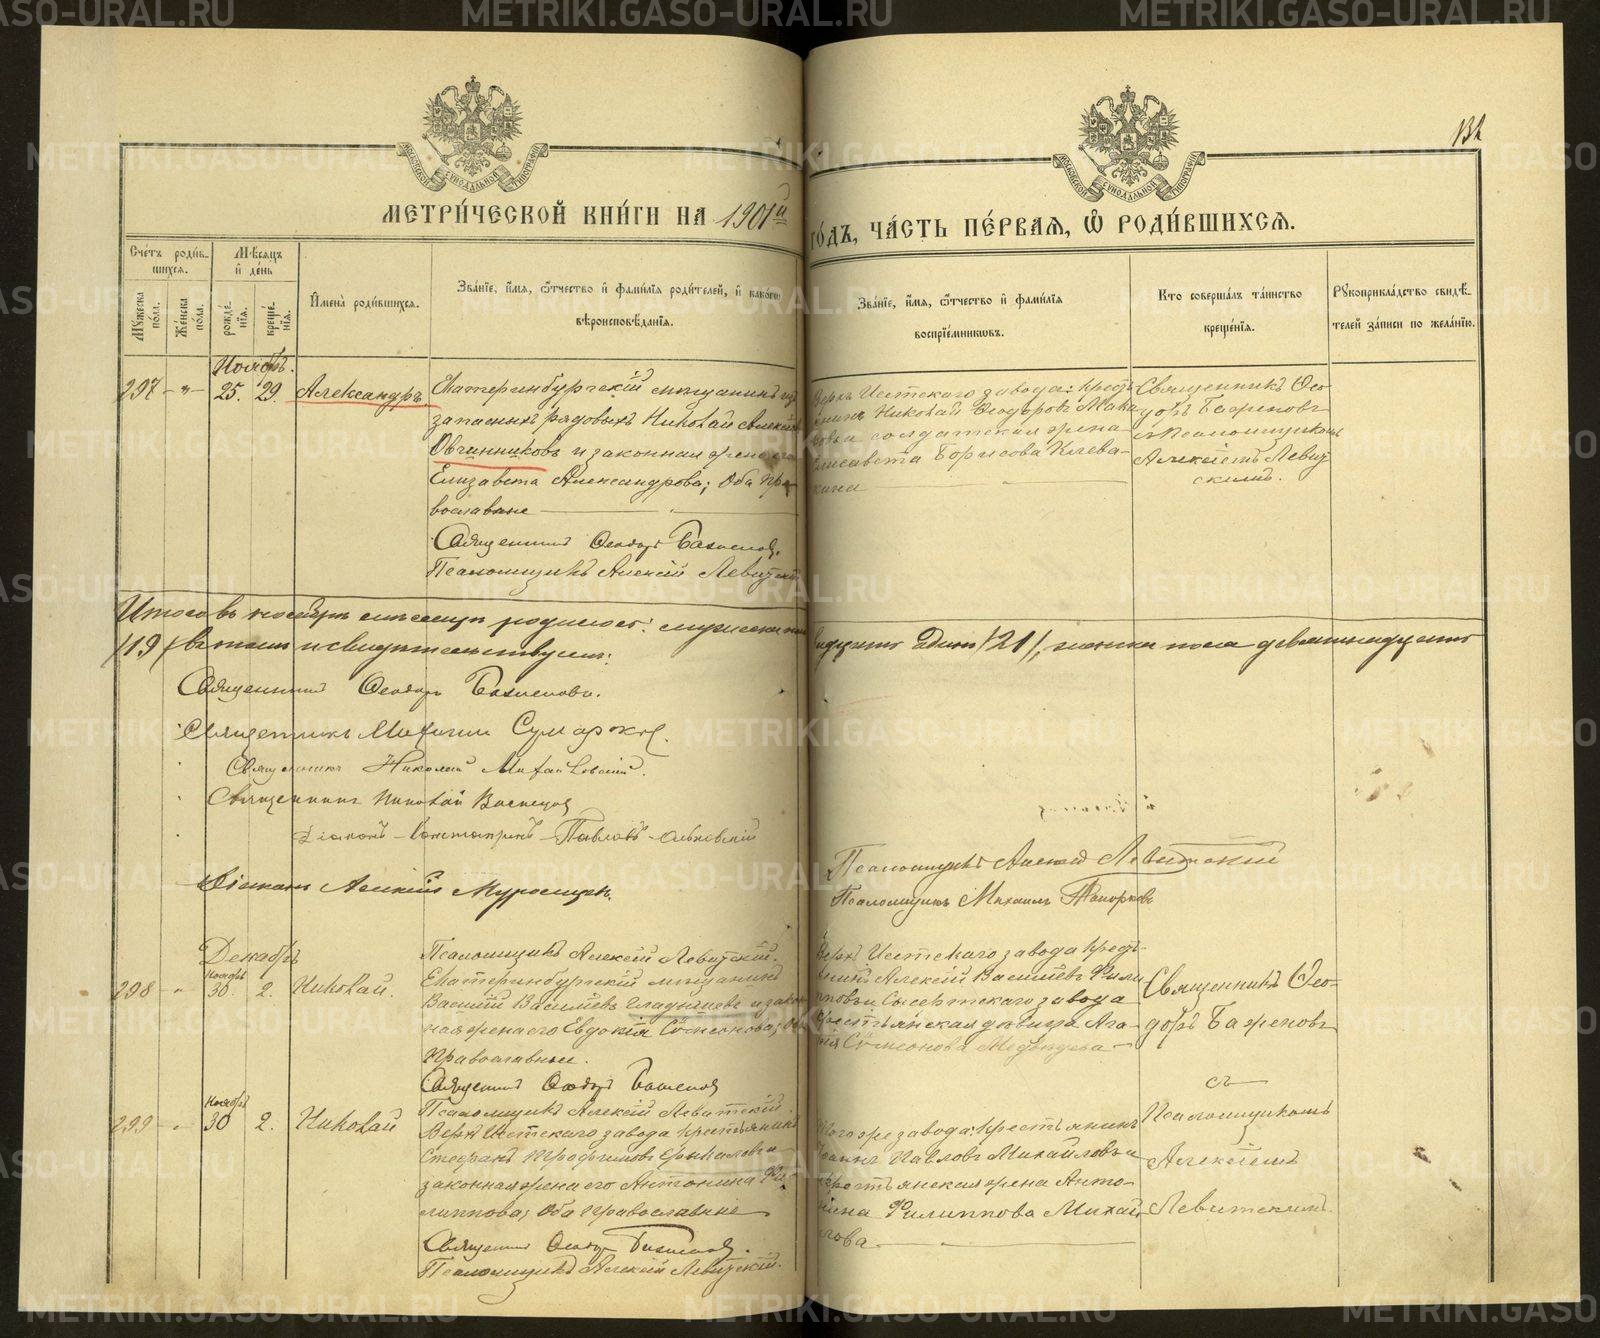 132
МЕТРИ́ЧЕСКОЙ КНИ́ГИ НА 1901й
ГО́ДЪ, ЧА́СТЬ ПЕ́РВАЯ, Ѡ РОДИ́ВШИХСЯ.
Сче́тъ роди́в-
шихся.
Му́жеска по́ла.
Же́нска по́ла.
Мѣ́сяцъ
и́ де́нь
рожде́нїя.
креще́нїя.
И҆мена̀ роди́вшихся.
Зва́нїе, и҆́мя, ѻ҆́тчество и҆ фами́лїя роди́телей, и҆ како́гѡ
вѣроисповѣ́данїя.
Зва́нїе, и҆́мя, ѻ҆́тчество и҆ фами́лїя
воспрїе́мникѡвъ.
Кто̀ соверша́лъ та́инство
креще́нїя.
Рꙋкоприкла́дство свидѣ́-
телей за́писи по жела́нїю.
Ноябрь.
297 - " - 25. 29. Александръ.
Екатеринбургскій мѣщанинъ из
запасныхъ рядовыхъ Николай Алексѣ
Овчинниковъ и законная жена его
Елизавета Александрова; Оба пра-
вославные
Священникъ Ѳеодоръ Баженовъ.
Псаломщикъ Алексій Левитскій
Верхъ Исетскаго завода: крест
янинъ Николай Ѳеодоровъ Мака
ровъ и солдатская жена
Елисавета Борисова Клева-
кина
Священникъ Ѳео-
доръ Баженовъ
и Псаломщикомъ
Алексіемъ Левит
скимъ.
Итого въ ноябрѣ мѣсяцѣ родилось: мужеска пола
двадцать одинъ /21/, женска пола девятнадцать
/19/ въ томъ и свидѣтельствуемъ:
Священникъ Ѳеодоръ Баженовъ.
Священникъ Михаилъ Сумароковъ.
Священникъ Николай
Священникъ Николай
Діаконъ Константинъ Павловъ
Діаконъ Алексій
Псаломщикъ Алексій Левитскій
Псаломщикъ Михаилъ Топорковъ
Декабрь
Псаломщикъ Алексій Левитскій.
Ноябрь
298 - " 30. 2. Николай.
Екатеринбургскій мѣщанинъ
Василій Васильевъ Гладышевъ и закон
ная жена его Евдокія Сѵмеонова; Оба
православные.
Священникъ Ѳеодоръ Баженовъ
Псаломщикъ Алексій Левитскій.
Верхъ Исетскаго завода крестъ-
янинъ Алексій Васильевъ Фили
пповъ и Сысертскаго завода
крестьянская дѣвица Ага
фія Сѵмеонова Медвѣдева
Священникъ Ѳео-
доръ Баженовъ
съ
Псаломщикомъ
Алексіемъ
Левитскимъ.
Ноябрь
299 - " 30 2. Николай
Верхъ Исетскаго завода крестьянинъ
Стефанъ Трофимовъ и
законная жена его Антонина Фи-
липпова; Оба православные
Священникъ Ѳеодоръ Баженовъ.
Псаломщикъ Алексій Левитскій.
Того же завода: крестьянинъ
Іоаннъ Павловъ Михайловъ и
крестьянская жена Анто-
нина Филиппова Михай
лова
METRIKI.GASO-URAL.RU